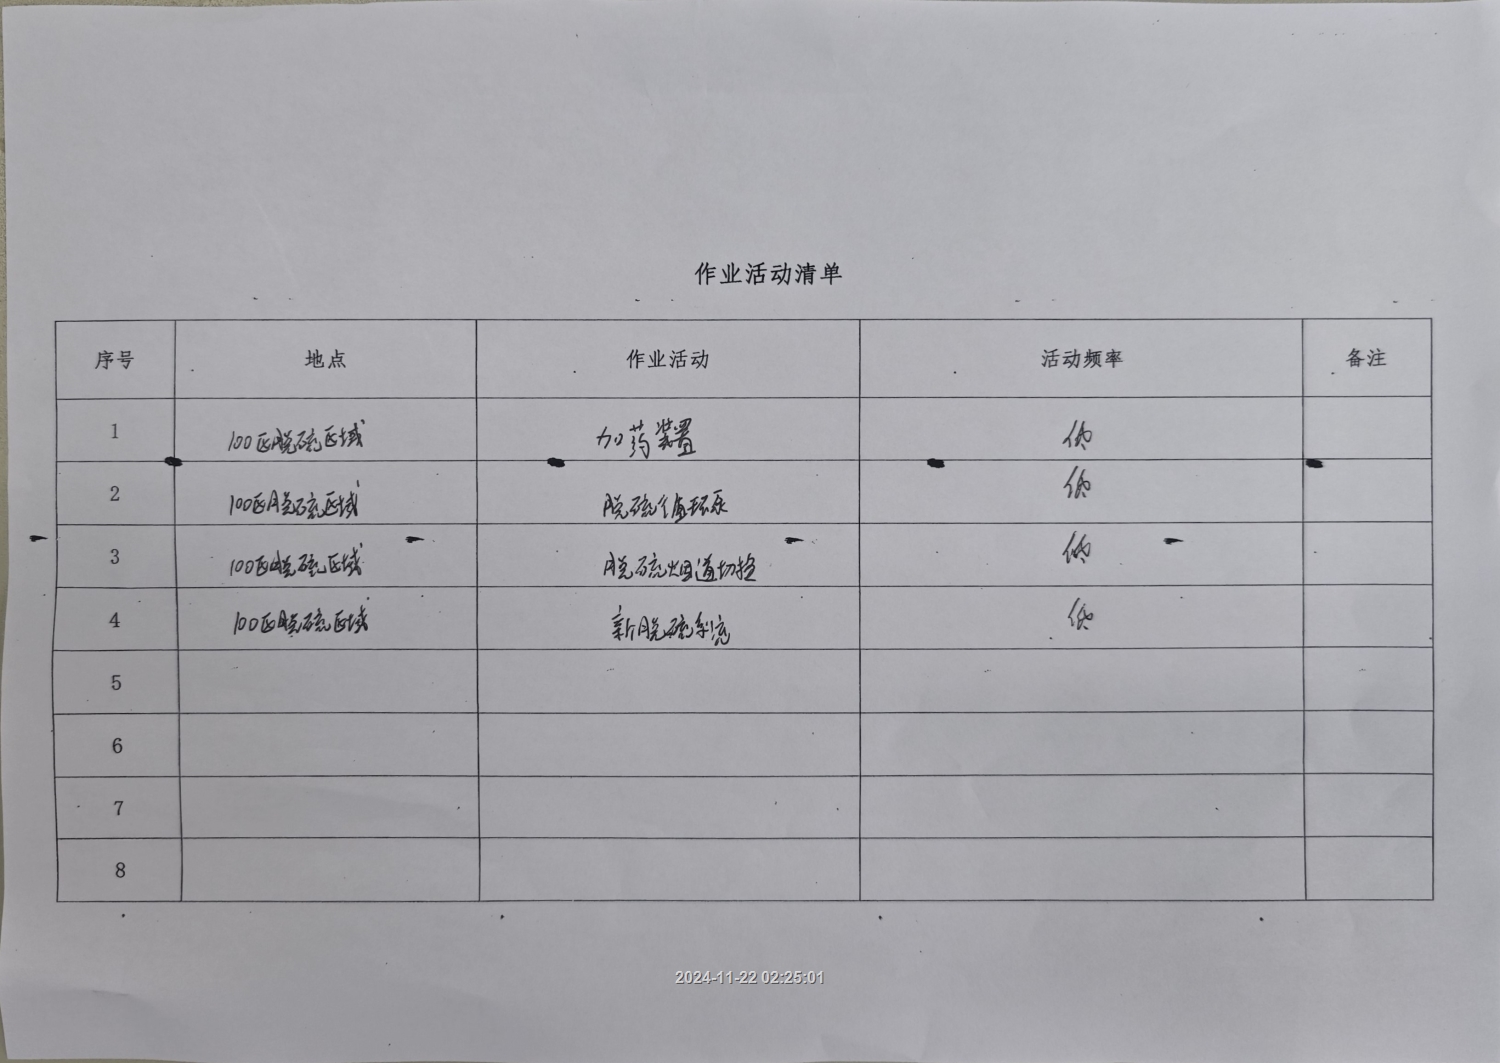 作业活动清单
序号 地点 作业活动 活动频率 备注
1 100区脱硫区域 加药装置 低
2 100区脱硫区域 脱硫循环泵 低
3 100区脱硫区域 脱硫烟道切换 低
4 100区脱硫区域 新脱硫系统 低
5
6
7
8
2024-11-22 02:25:01